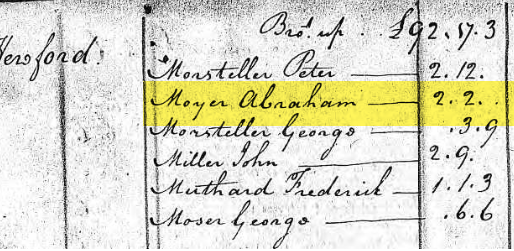 Bro.t up . £92.17.3
Hereford.
Morsteller Peter — 2.12.
Moyer Abraham — 2.2.
Morsteller George — .3.9
Miller John — 2.9.
Muthard Frederick — 1.1.3
Moser George — .6.6